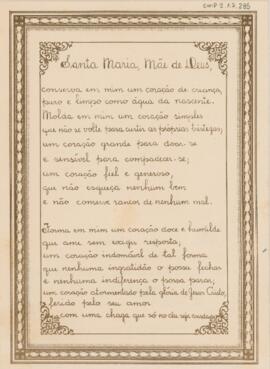 CMP 2.1.7. 285
Santa Maria, Mãe de Deus,
conserva em mim um coração de criança,
puro e limpo como água da nascente.
Molda em mim um coração simples
que não se volte para curtir as próprias tristezas;
um coração grande para doar-se
e sensível para compadecer-se;
um coração fiel e generoso,
que não esqueça nenhum bem
e não conserve rancor de nenhum mal.
Forma em mim um coração doce e humilde
que ame sem exigir resposta;
um coração indomável de tal forma
que nenhuma ingratidão o possa fechar
e nenhuma indiferença o possa parar;
um coração atormentado pela glória de Jesus Cristo,
ferido pelo seu amor
com uma chaga que só no céu seja curada